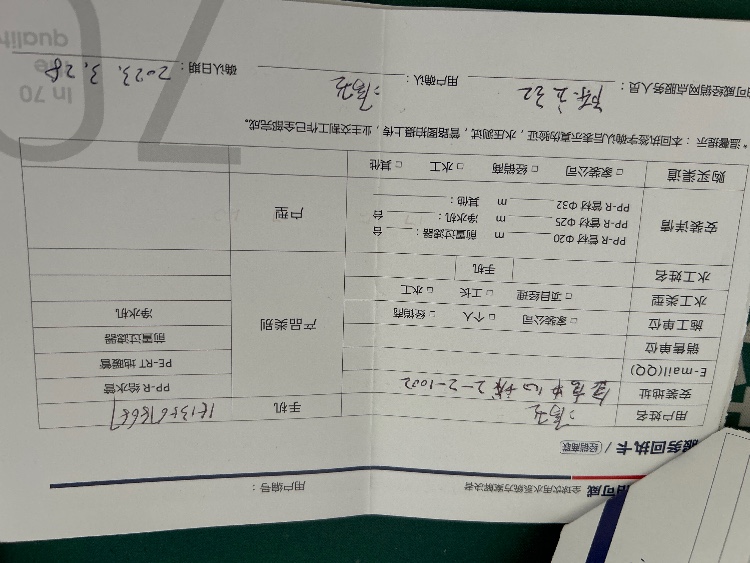 可威 全球饮用水系统方案解决者
用户编号：
服务回执卡 / 经销商联
用户姓名 手机
安装地址 2-2-1002
E-mail(QQ)
销售单位
施工单位 □ 家装公司 □ 个人 □ 经销商
水工类型 □ 项目经理 □ 工长 □ 水工
水工姓名 手机
产品类别
PP-R 给水管
PE-RT 地暖管
前置过滤器
净水机
安装详情
PP-R 管材 Φ20 m 前置过滤器： 台
PP-R 管材 Φ25 m 净水机： 台
PP-R 管材 Φ32 m 其他：
户型
购买渠道 □ 家装公司 □ 经销商 □ 水工 □ 其他
*温馨提示：本回执签字确认后表示真伪验证，水压测试，管路图拍摄上传，业主交割工作已全部完成。
可威经销网点服务人员： 用户确认： 确认日期：2023.3.28